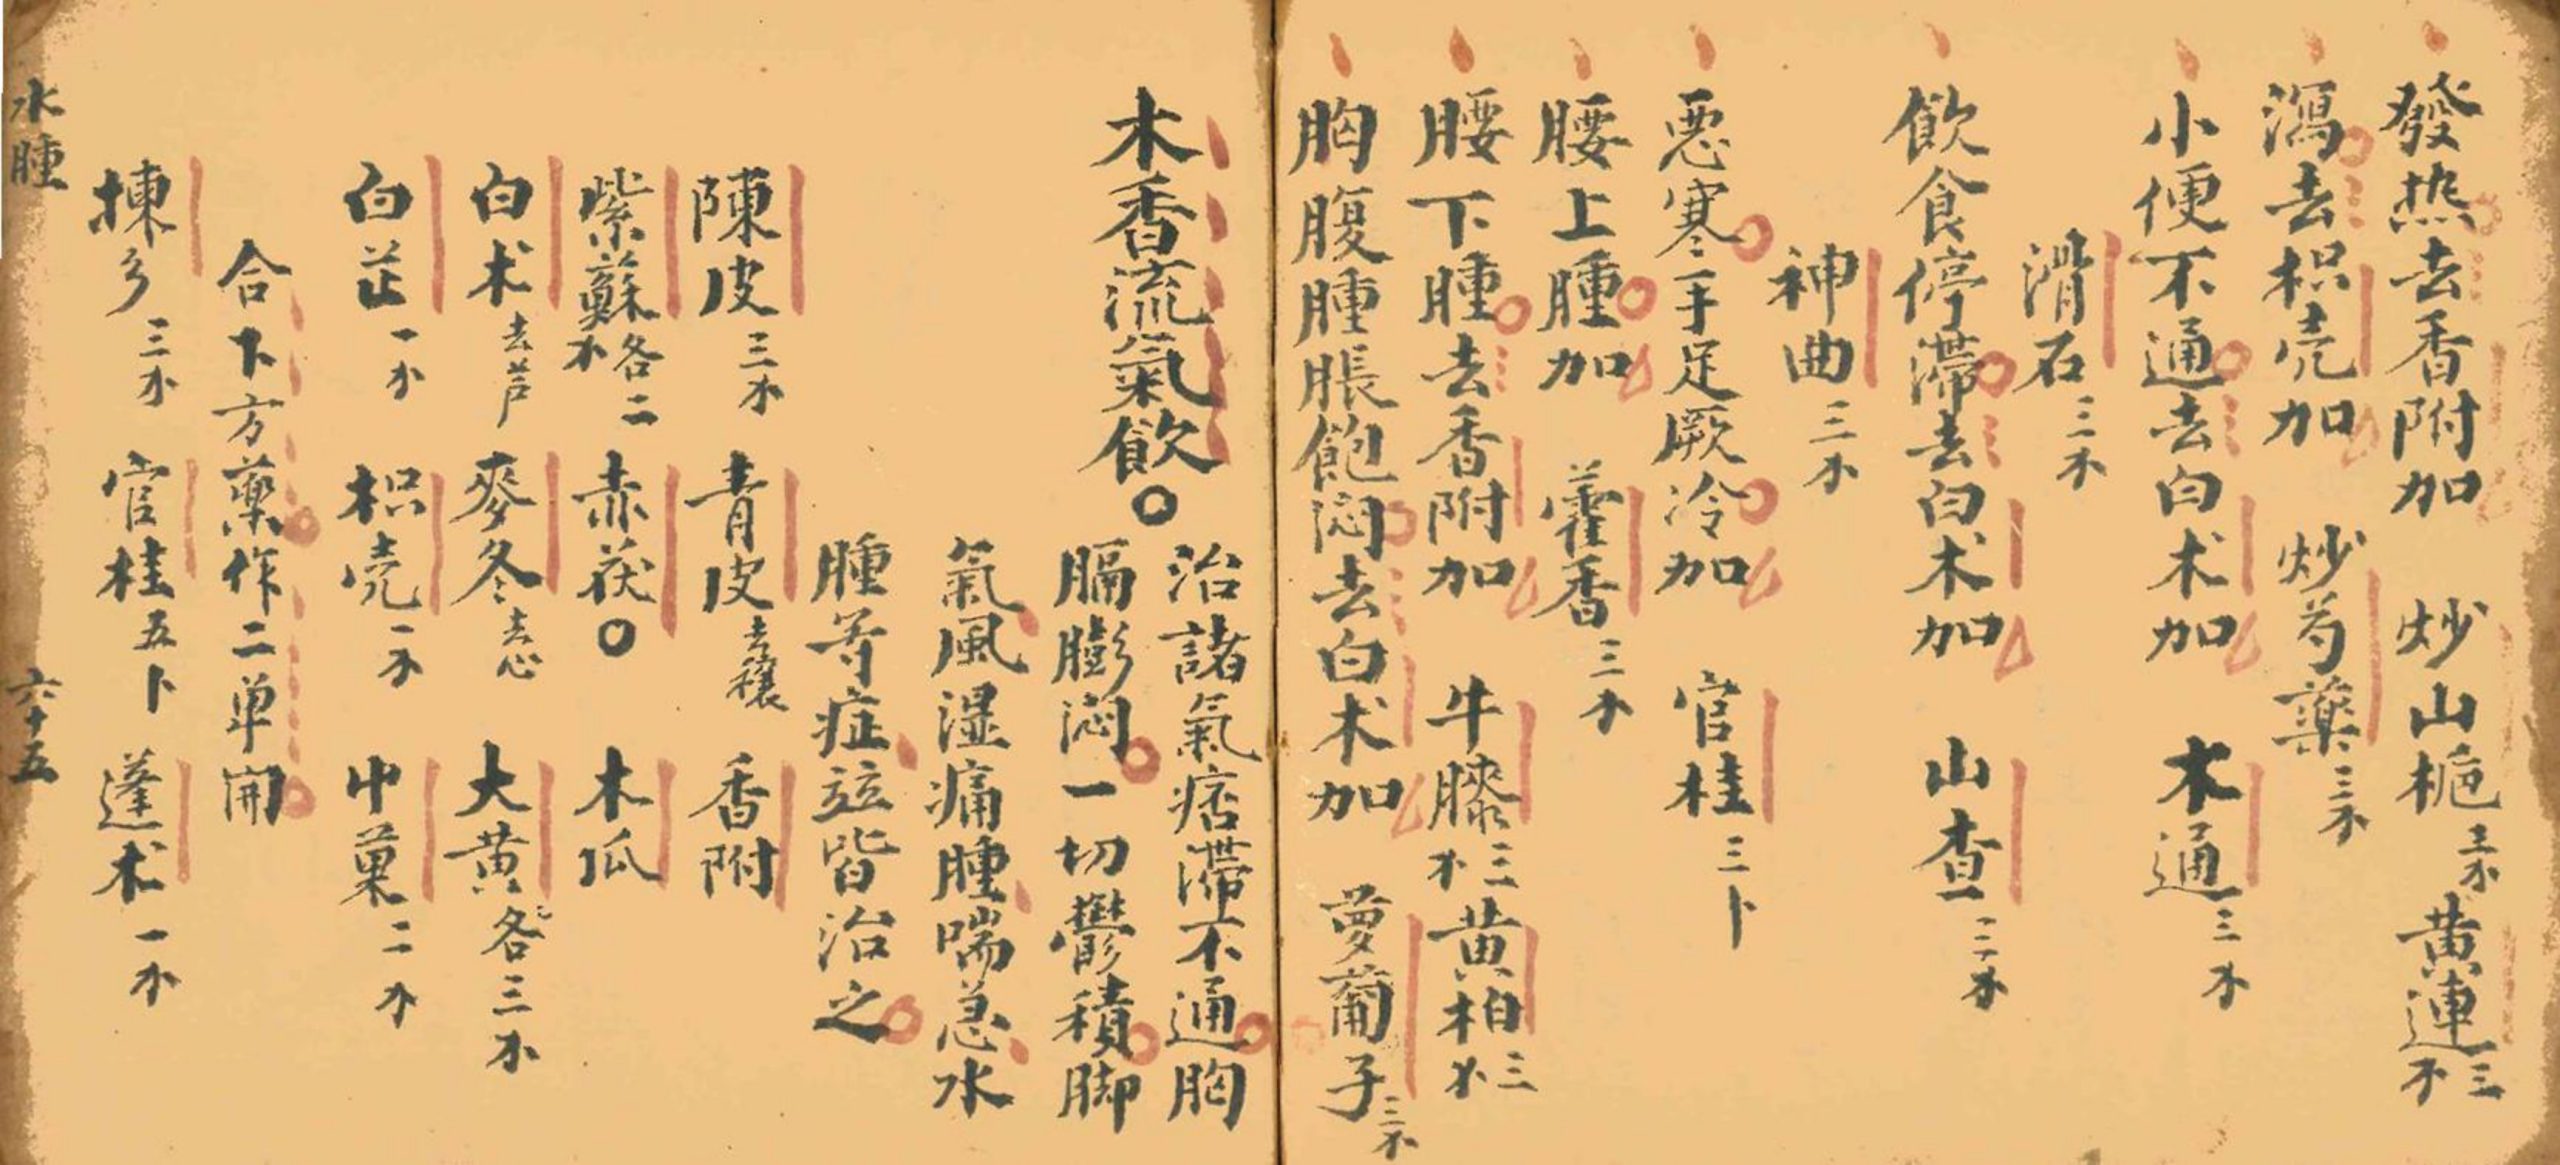 發热去香附加 炒山梔三不 黄連三不
瀉去枳壳加 炒芍藥三不
小便不通去白术加 木通三不
滑石三不
飲食停滯去白术加 山查二不
神曲三不
惡寒手足厥冷加 官桂三卜
腰上腫加 藿香三不
腰下腫去香附加 牛膝三不 黄柏三不
胸腹腫脹飽悶去白术加 蘿蔔子三不
木香流氣飲○
治諸氣痞滯不通胸
膈膨悶一切鬱積脚
氣風湿痛腫喘急水
腫等症竝皆治之
陳皮三不 青皮去穰 香附
紫蘇各二不 赤茯○ 木瓜
白术去芦 麥冬去心 大黄各三不
白芷一不 枳壳一不 中菓二不
合下方藥作二单開
揀乡三不 官桂五卜 蓬术一不
水腫 六十五